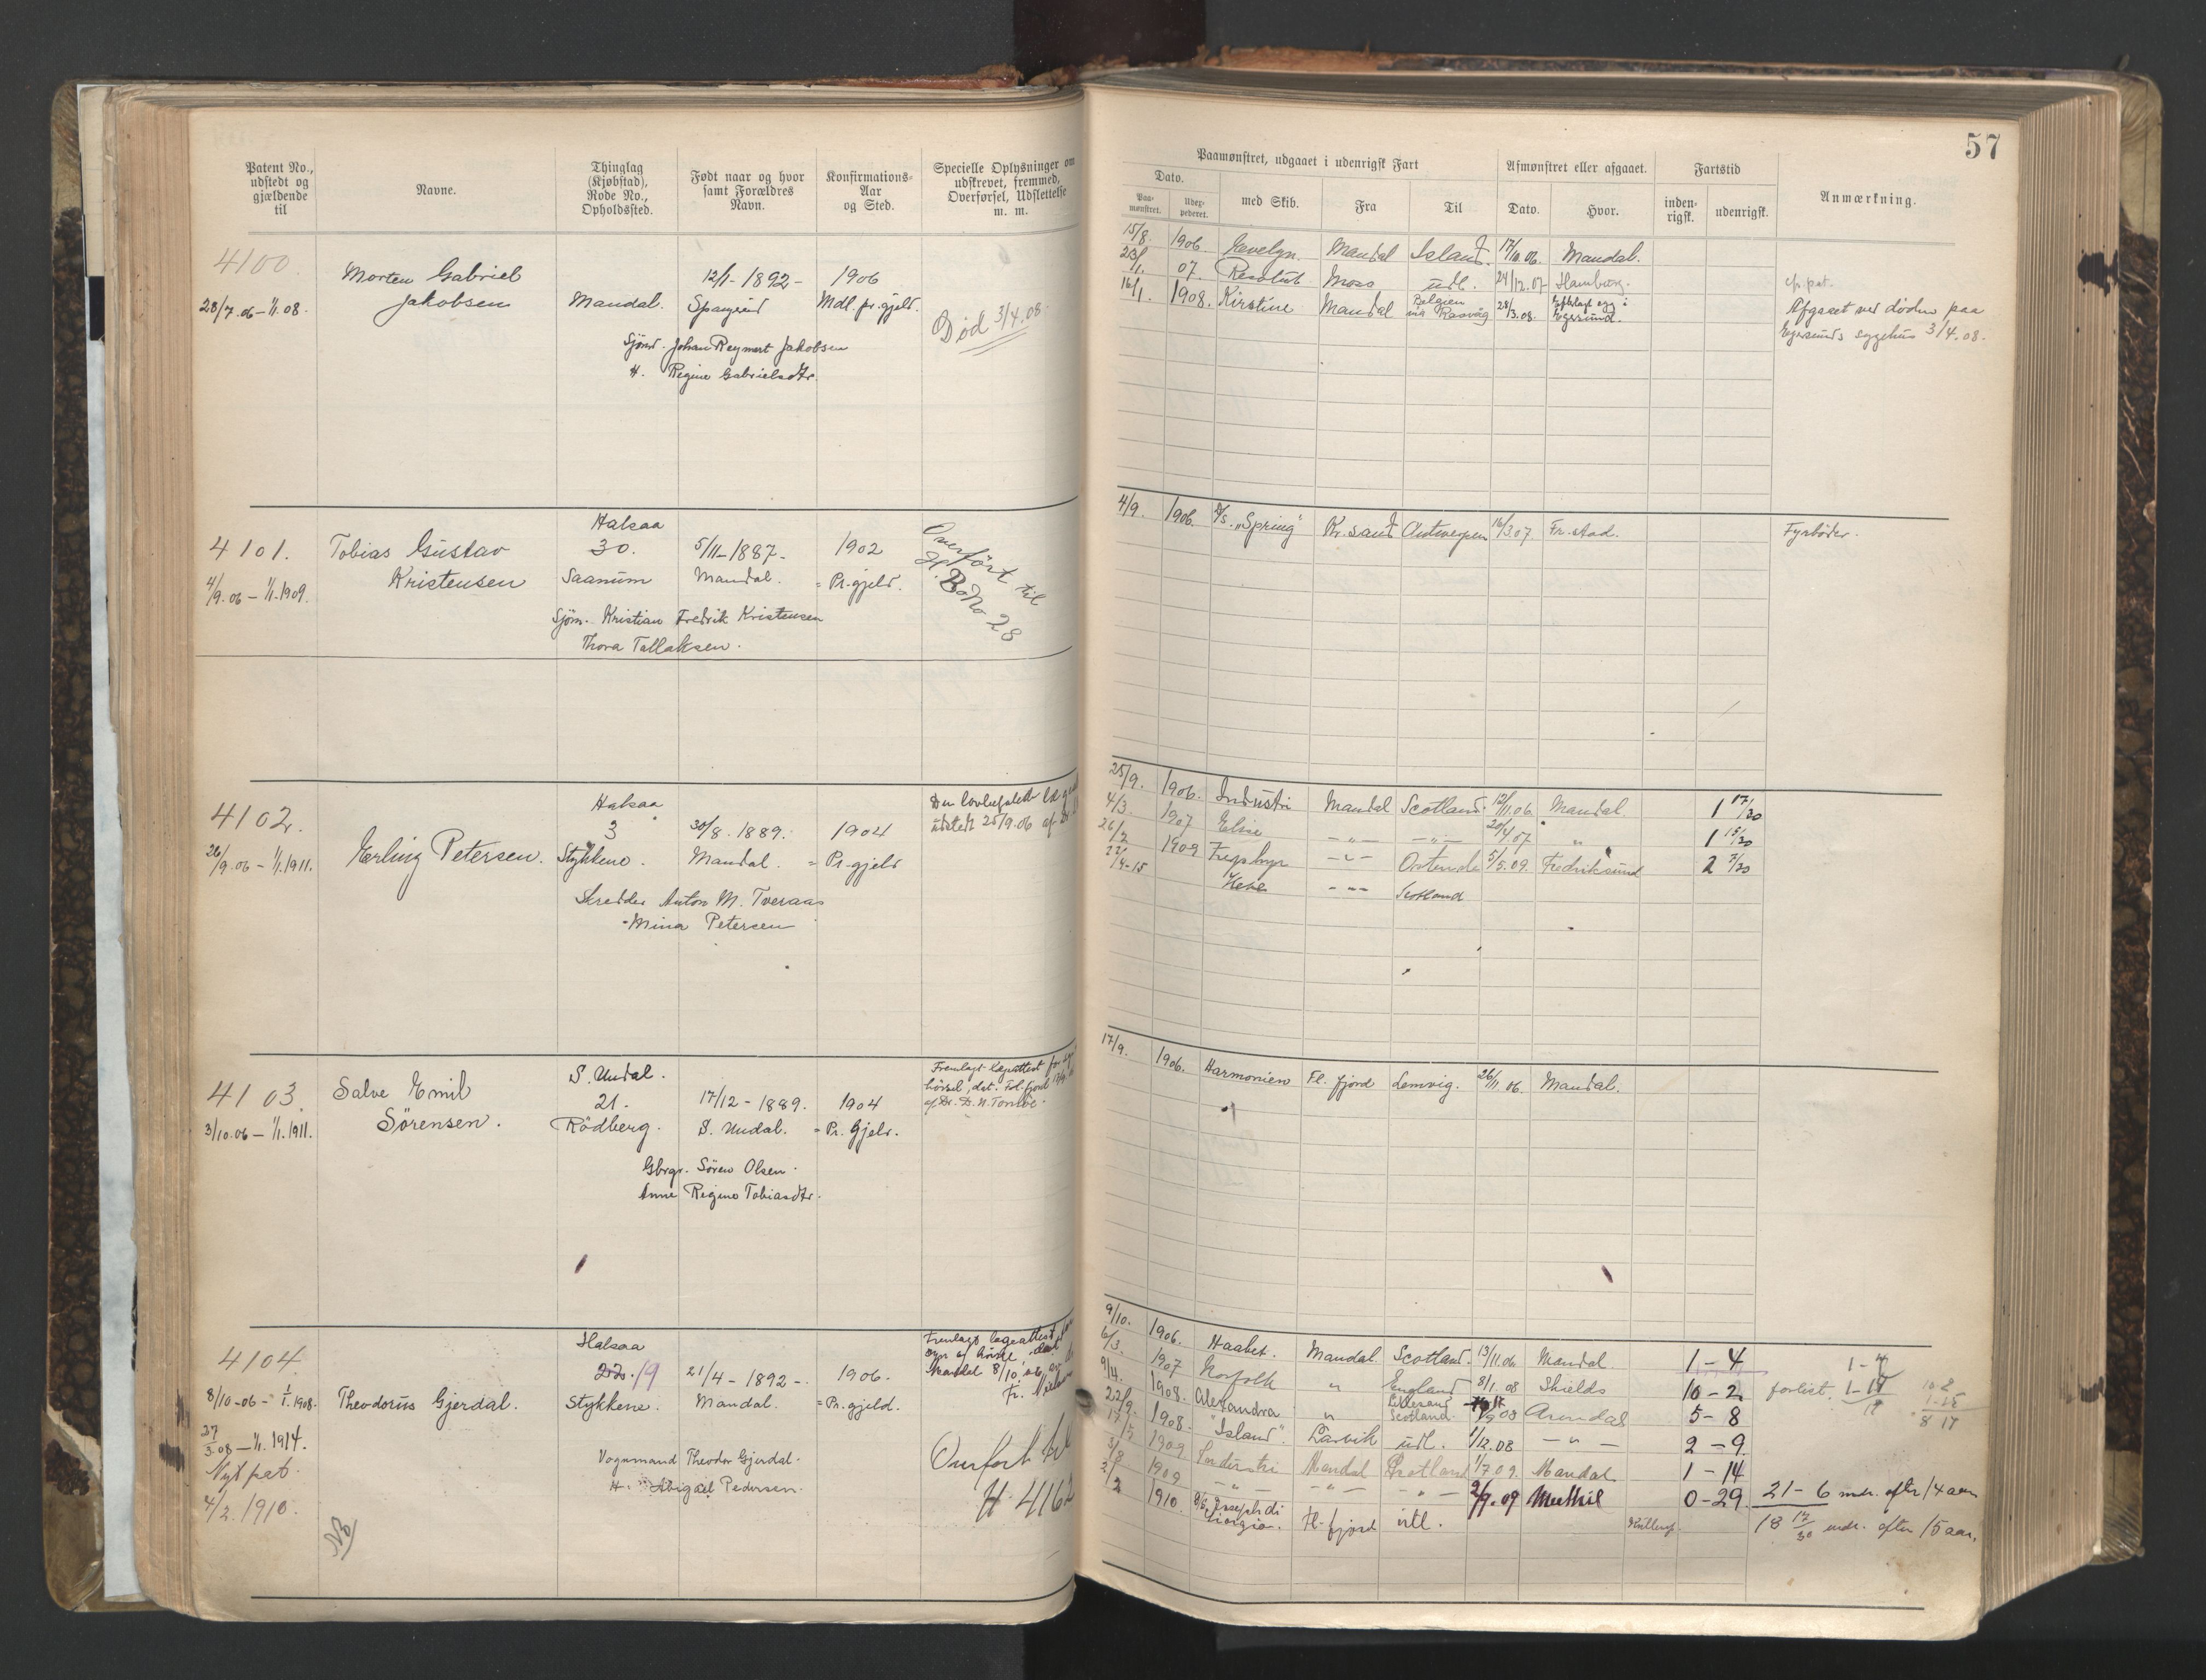 57
Patent No., udstedt og gjældende til
Navne.
Thinglag (Kjøbstad), Rode No., Opholdssted.
Født naar og hvor samt Forældres Navn.
Konfirmations-Aar og Sted.
Specielle Oplysninger om udskrevet, fremmed, Overførsel, Udslettelse m. m.
Paamønstret, udgaaet i udenrigsk Fart
Afmønstret eller afgaaet.
Fartstid
Anmærkning.
Dato.
Paa-mønstret.
med Skib.
Fra
Til
Dato.
Hvor.
inden-rigsk.
udenrigsk.
4100.
28/7.06 – 1/1.08.
Morten Gabriel
Jakobsen
Mandal.
12/1 – 1892 –
1906
Mdl. pr.gjeld.
Johan Reymert Jakobsen
H. Regine Gabrielsdtr.
Død 3/4.08.
15/8. 1906. Mandal Island 17/10.06. Mandal.
07. Resolut Moss udl. 24/12.07 Hamburg.
16/1. 1908. Kirstine Mandal Belgien 28/3.08. Egersund.
Afgaaet ved døden paa
Egersunds sygehus 3/4.08.
4101.
4/9.06 – 1/1.1909.
Tobias Gustav
Kristensen
Halsaa
30.
Saanum
5/11 – 1887 –
Mandal.
1902
Pr.gjeld.
Sjøm. Kristian Fredrik Kristensen
Thora Tallaksen.
Overført til
H. B. No 28
4/9. 1906. D/S. „Spring“ Kr.sand Antwerpen 16/3.07. Fr.stad.
Fyrbøder.
4102.
26/9.06 – 1/1.1911.
Erling Petersen.
Halsaa
3
Stykkene.
30/8. 1889.
Mandal.
1904
Pr.gjeld
Skredder Anton M. Tveraas
Mina Petersen
udstedt 25/9.06 af
25/9. 1906. Industri Mandal Scotland. 12/11.06. Mandal. 1 17/30
4/3. 1907 Elise – „ – – „ – 20/4.07 „ 1 15/30
26/2 1909 – „ – Ostende 5/5.09. Fredriksund 2 7/30
22/4-15 Hebe – „ – Scotland
4103.
3/10.06 – 1/1.1911.
Salve Emil
Sørensen.
S. Undal.
21.
Rödberg.
17/12 – 1889.
S. Undal.
1904
Pr. Gjeld.
Gbrgr. Sören Olsen.
Anne Regine Tobiasdtr.
17/9. 1906. Harmonien Fl. fjord Lemvig. 26/11.06. Mandal.
4104
8/10-06 – 1/1.1908.
27/3.08 – 1/1.1914.
Nyt pat.
4/2.1910.
Theodorus Gjerdal.
Halsaa
19
Stykkene.
21/4 – 1892 –
Mandal.
1906.
Pr.gjeld.
Vognmand Theodor Gjerdal.
H. Abigael Pedersen.
Mandal 8/10.06
Overført til
H 4162
9/10. 1906. Haabet. Mandal Scotland. 13/11.06. Mandal. 1 – 4
6/3. 1907 Norfolk „ England 8/1.08 Shields 10 – 2 forlist.
9/4. 1908. Alexandra „ Lillesand Scotland Arendal 5 – 8
22/9. 1908. „Island“. Larvik udl. 1/12.08 – „ – 2 – 9
1909 Industri Mandal Scotland 1/7.09. Mandal 1 – 14
3/8 1909 – „ – – „ – – „ – 2/9.09 Methil 0 – 29
21 – 6 mdr. efter 14 aar
1910. Fl. fjord udl.
18 17/30 mdr. efter 15 aar.